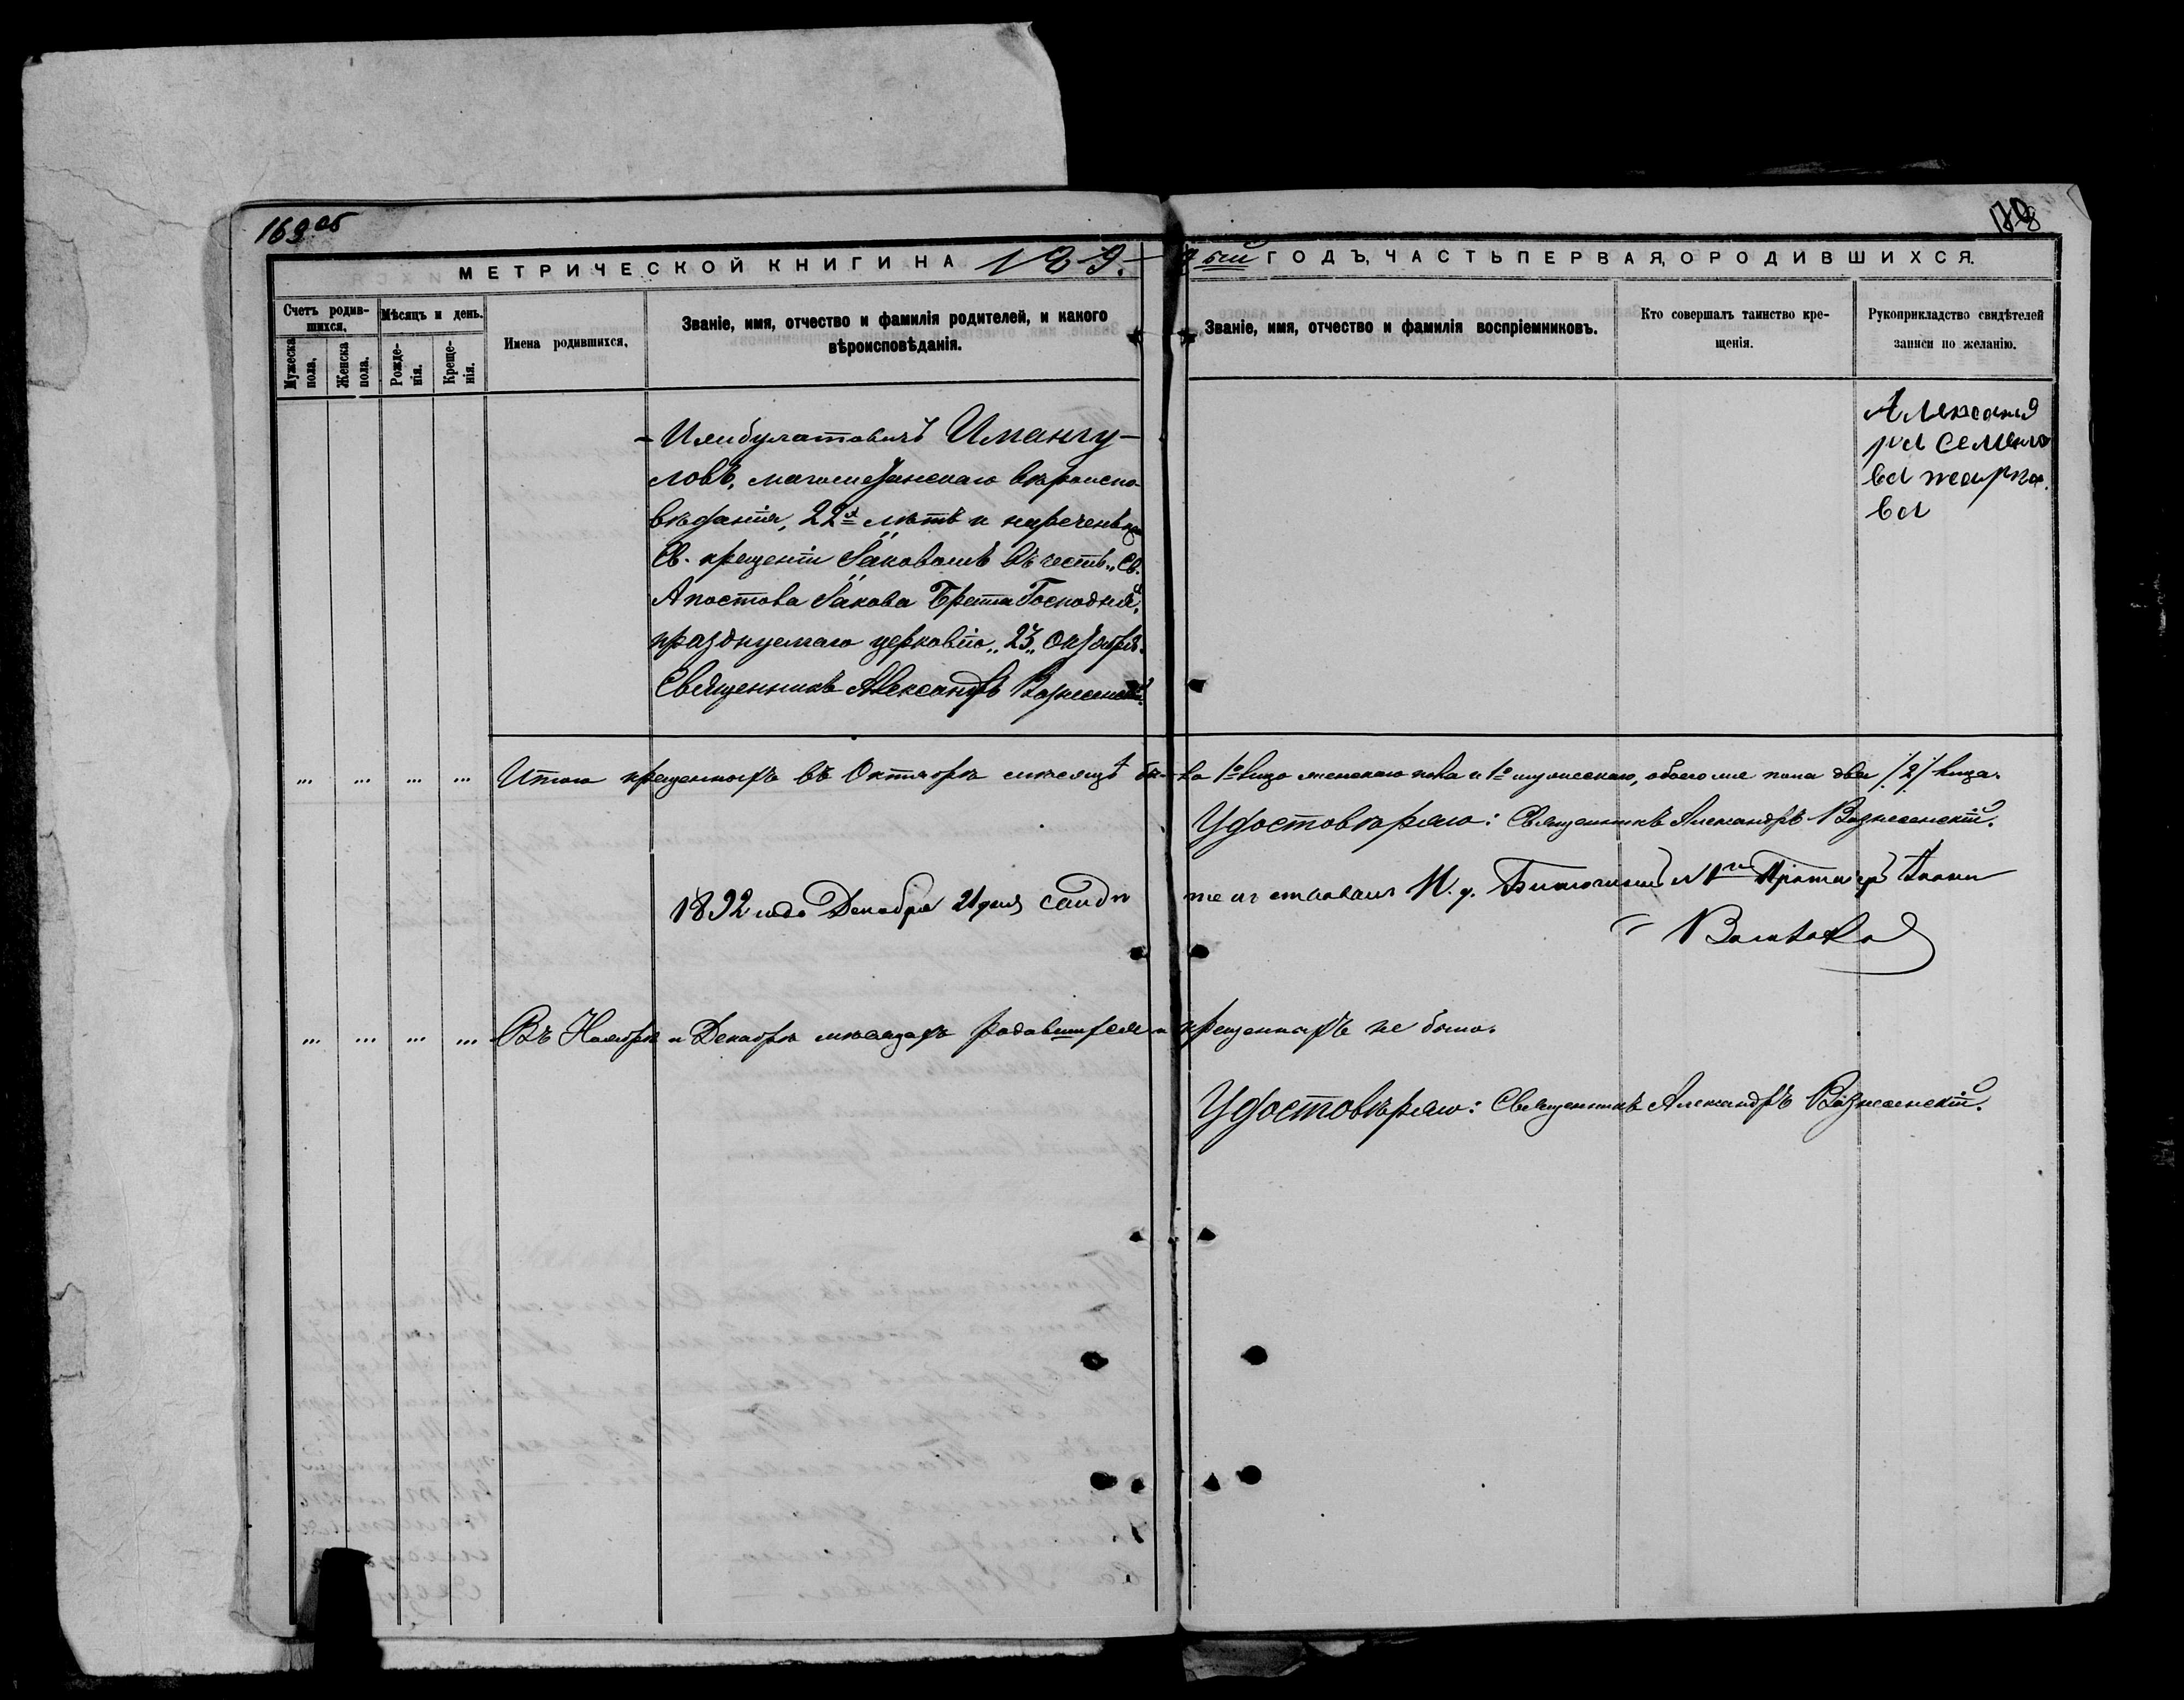 169 об
МЕТРИЧЕСКОЙ КНИГИ НА 189-2 ый ГОДЪ, ЧАСТЬ ПЕРВАЯ, О РОДИВШИХСЯ.
Счетъ родив-
шихся.
Мужеска пола.
Женска пола.
Мѣсяцъ и день.
Рожде-
нія.
Креще-
нія.
Имена родившихся.
Званіе, имя, отчество и фамилія родителей, и какого
вѣроисповѣданія.
Званіе, имя, отчество и фамилія воспріемниковъ.
Кто совершалъ таинство кре-
щенія.
Рукоприкладство свидѣтелей
записи по желанію.
Имангу-
ловъ, магометанскаго вѣроиспо-
вѣданія, 22х лѣтъ и нареченъ
Св. крещеніи Іаковомъ въ честь „Св.
Апостола Іакова Брата Господня",
празднуемаго церковію „23" Октября.
Священникъ Александръ Вознесенскій.
Александ
ра Семено
ва жарко
ва
Итого крещенныхъ въ Октябрѣ мѣсяцѣ бы-ло 1о лицо женскаго пола и 1о мужескаго, обоего же пола два /2/ лица.
Удостовѣряю: Священникъ Александръ Вознесенскій.
1892 года Декабря 21 дня свидѣ
И. д. Благочиннаго
В Ноябрѣ и Декабрѣ мѣсяцахъ родившихся и крещенныхъ не было.
Удостовѣряю: Священникъ Александръ Вознесенскій.